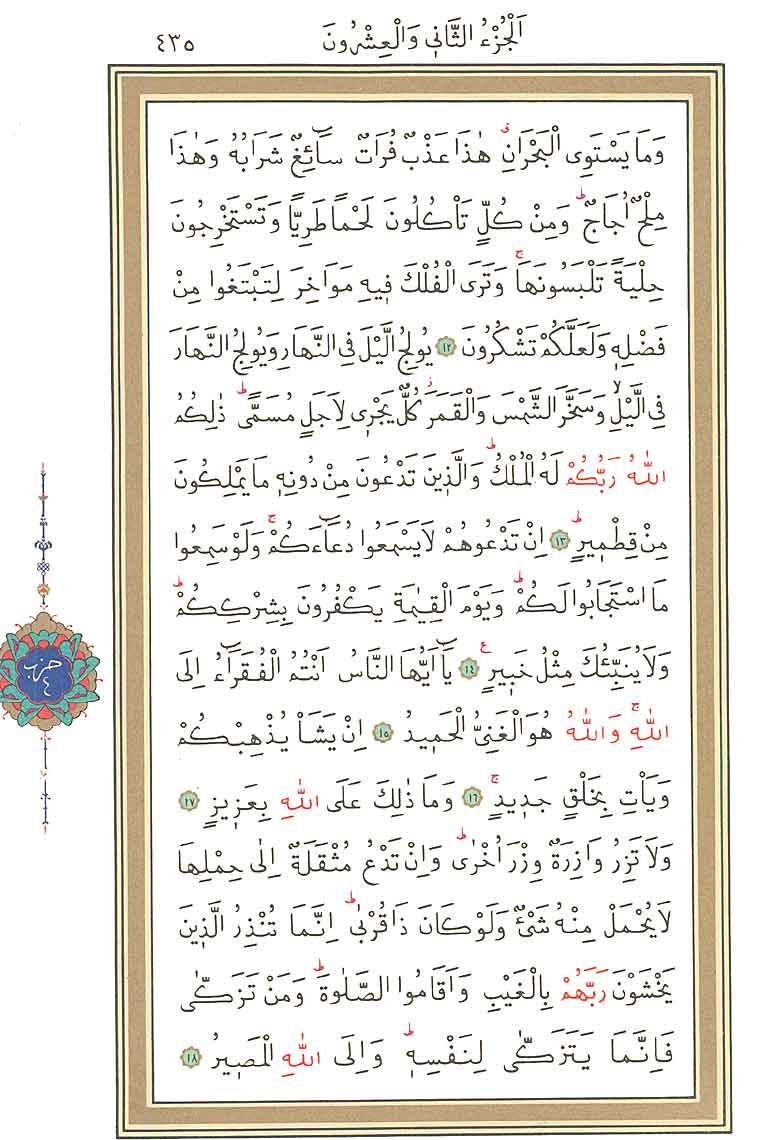 اَلْجُزْءُ الثَّانٖي وَالْعِشْرُونَ ٤٣٥
وَمَا يَسْتَوِي الْبَحْرَانِۗ هٰذَا عَذْبٌ فُرَاتٌ سَٓائِغٌ شَرَابُهُ وَهٰذَا
مِلْحٌ اُجَاجٌۜ وَمِنْ كُلٍّ تَاْكُلُونَ لَحْماً طَرِياًّ وَتَسْتَخْرِجُونَ
حِلْيَةً تَلْبَسُونَهَاۚ وَتَرَى الْفُلْكَ فٖيهِ مَوَاخِرَ لِتَبْتَغُوا مِنْ
فَضْلِهٖ وَلَعَلَّكُمْ تَشْكُرُونَ ١٢ يُولِجُ الَّيْلَ فِي النَّهَارِ وَيُولِجُ النَّهَارَ
فِي الَّيْلِۙ وَسَخَّرَ الشَّمْسَ وَالْقَمَرَؗ كُلٌّ يَجْرٖي لِاَجَلٍ مُسَمًّىۜ ذٰلِكُمُ
اللّٰهُ رَبُّكُمْ لَهُ الْمُلْكُۜ وَالَّذٖينَ تَدْعُونَ مِنْ دُونِهٖ مَا يَمْلِكُونَ
مِنْ قِطْمٖيرٍۜ ١٣ اِنْ تَدْعُوهُمْ لَا يَسْمَعُوا دُعَٓاءَكُمْۚ وَلَوْ سَمِعُوا
مَا اسْتَجَابُوا لَكُمْۜ وَيَوْمَ الْقِيٰمَةِ يَكْفُرُونَ بِشِرْكِكُمْۜ
وَلَا يُنَبِّئُكَ مِثْلُ خَبٖيرٍࣖ ١٤ يَٓا اَيُّهَا النَّاسُ اَنْتُمُ الْفُقَرَٓاءُ اِلَى
اللّٰهِۚ وَاللّٰهُ هُوَ الْغَنِيُّ الْحَمٖيدُ ١٥ اِنْ يَشَاْ يُذْهِبْكُمْ
وَيَاْتِ بِخَلْقٍ جَدٖيدٍۚ ١٦ وَمَا ذٰلِكَ عَلَى اللّٰهِ بِعَزٖيزٍ ١٧
وَلَا تَزِرُ وَازِرَةٌ وِزْرَ اُخْرٰىۜ وَاِنْ تَدْعُ مُثْقَلَةٌ اِلٰى حِمْلِهَا
لَا يُحْمَلْ مِنْهُ شَيْءٌ وَلَوْ كَانَ ذَا قُرْبٰىۜ اِنَّمَا تُنْذِرُ الَّذٖينَ
يَخْشَوْنَ رَبَّهُمْ بِالْغَيْبِ وَاَقَامُوا الصَّلٰوةَۜ وَمَنْ تَزَكّٰى
فَاِنَّمَا يَتَزَكّٰى لِنَفْسِهٖۜ وَاِلَى اللّٰهِ الْمَصٖيرُ ١٨
حزب
٤